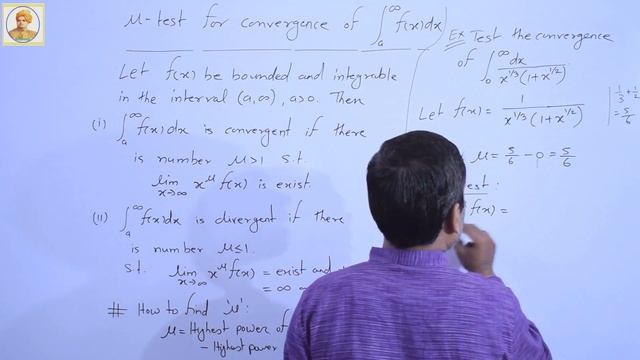 μ-test for convergence of ∫ₐ^∞ f(x)dx
Let f(x) be bounded and integrable
in the interval (a,∞), a>0. Then
(i) ∫ₐ^∞ f(x)dx is convergent if there
is number μ>1 s.t.
lim x→∞ x^μ f(x) is exist.
(ii) ∫ₐ^∞ f(x)dx is divergent if there
is number μ≤1.
s.t. lim x→∞ x^μ f(x) = exist and
= ∞
# How to find 'μ':
μ = Highest power of
- Highest power
Ex Test the convergence
of ∫₀^∞ dx / x^1/3 (1+x^1/2)
Let f(x) = 1 / x^1/3 (1+x^1/2)
1/3 + 1/2
= 5/6
μ = 5/6 - 0 = 5/6
f(x) =